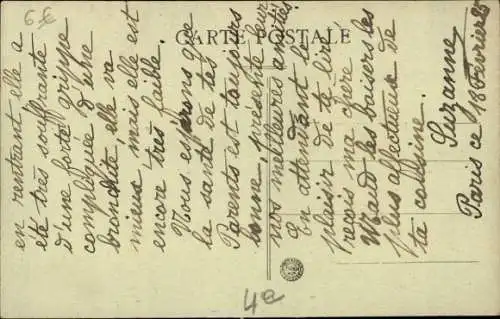 6 €
CARTE POSTALE
en rentrant elle a
été très souffrante
d'une forte grippe
compliquée d'une
bronchite, elle va
mieux, mais elle est
encore très faible.
Nous espérons que
la santé de tes
Parents est toujours
bonne, présente leur
nos meilleures amitiés.
En attendant le
plaisir de te lire
reçois ma chère
Maud les baisers les
plus affectueux de
ta cousine.
Suzanne
Paris ce 18 Février
4e